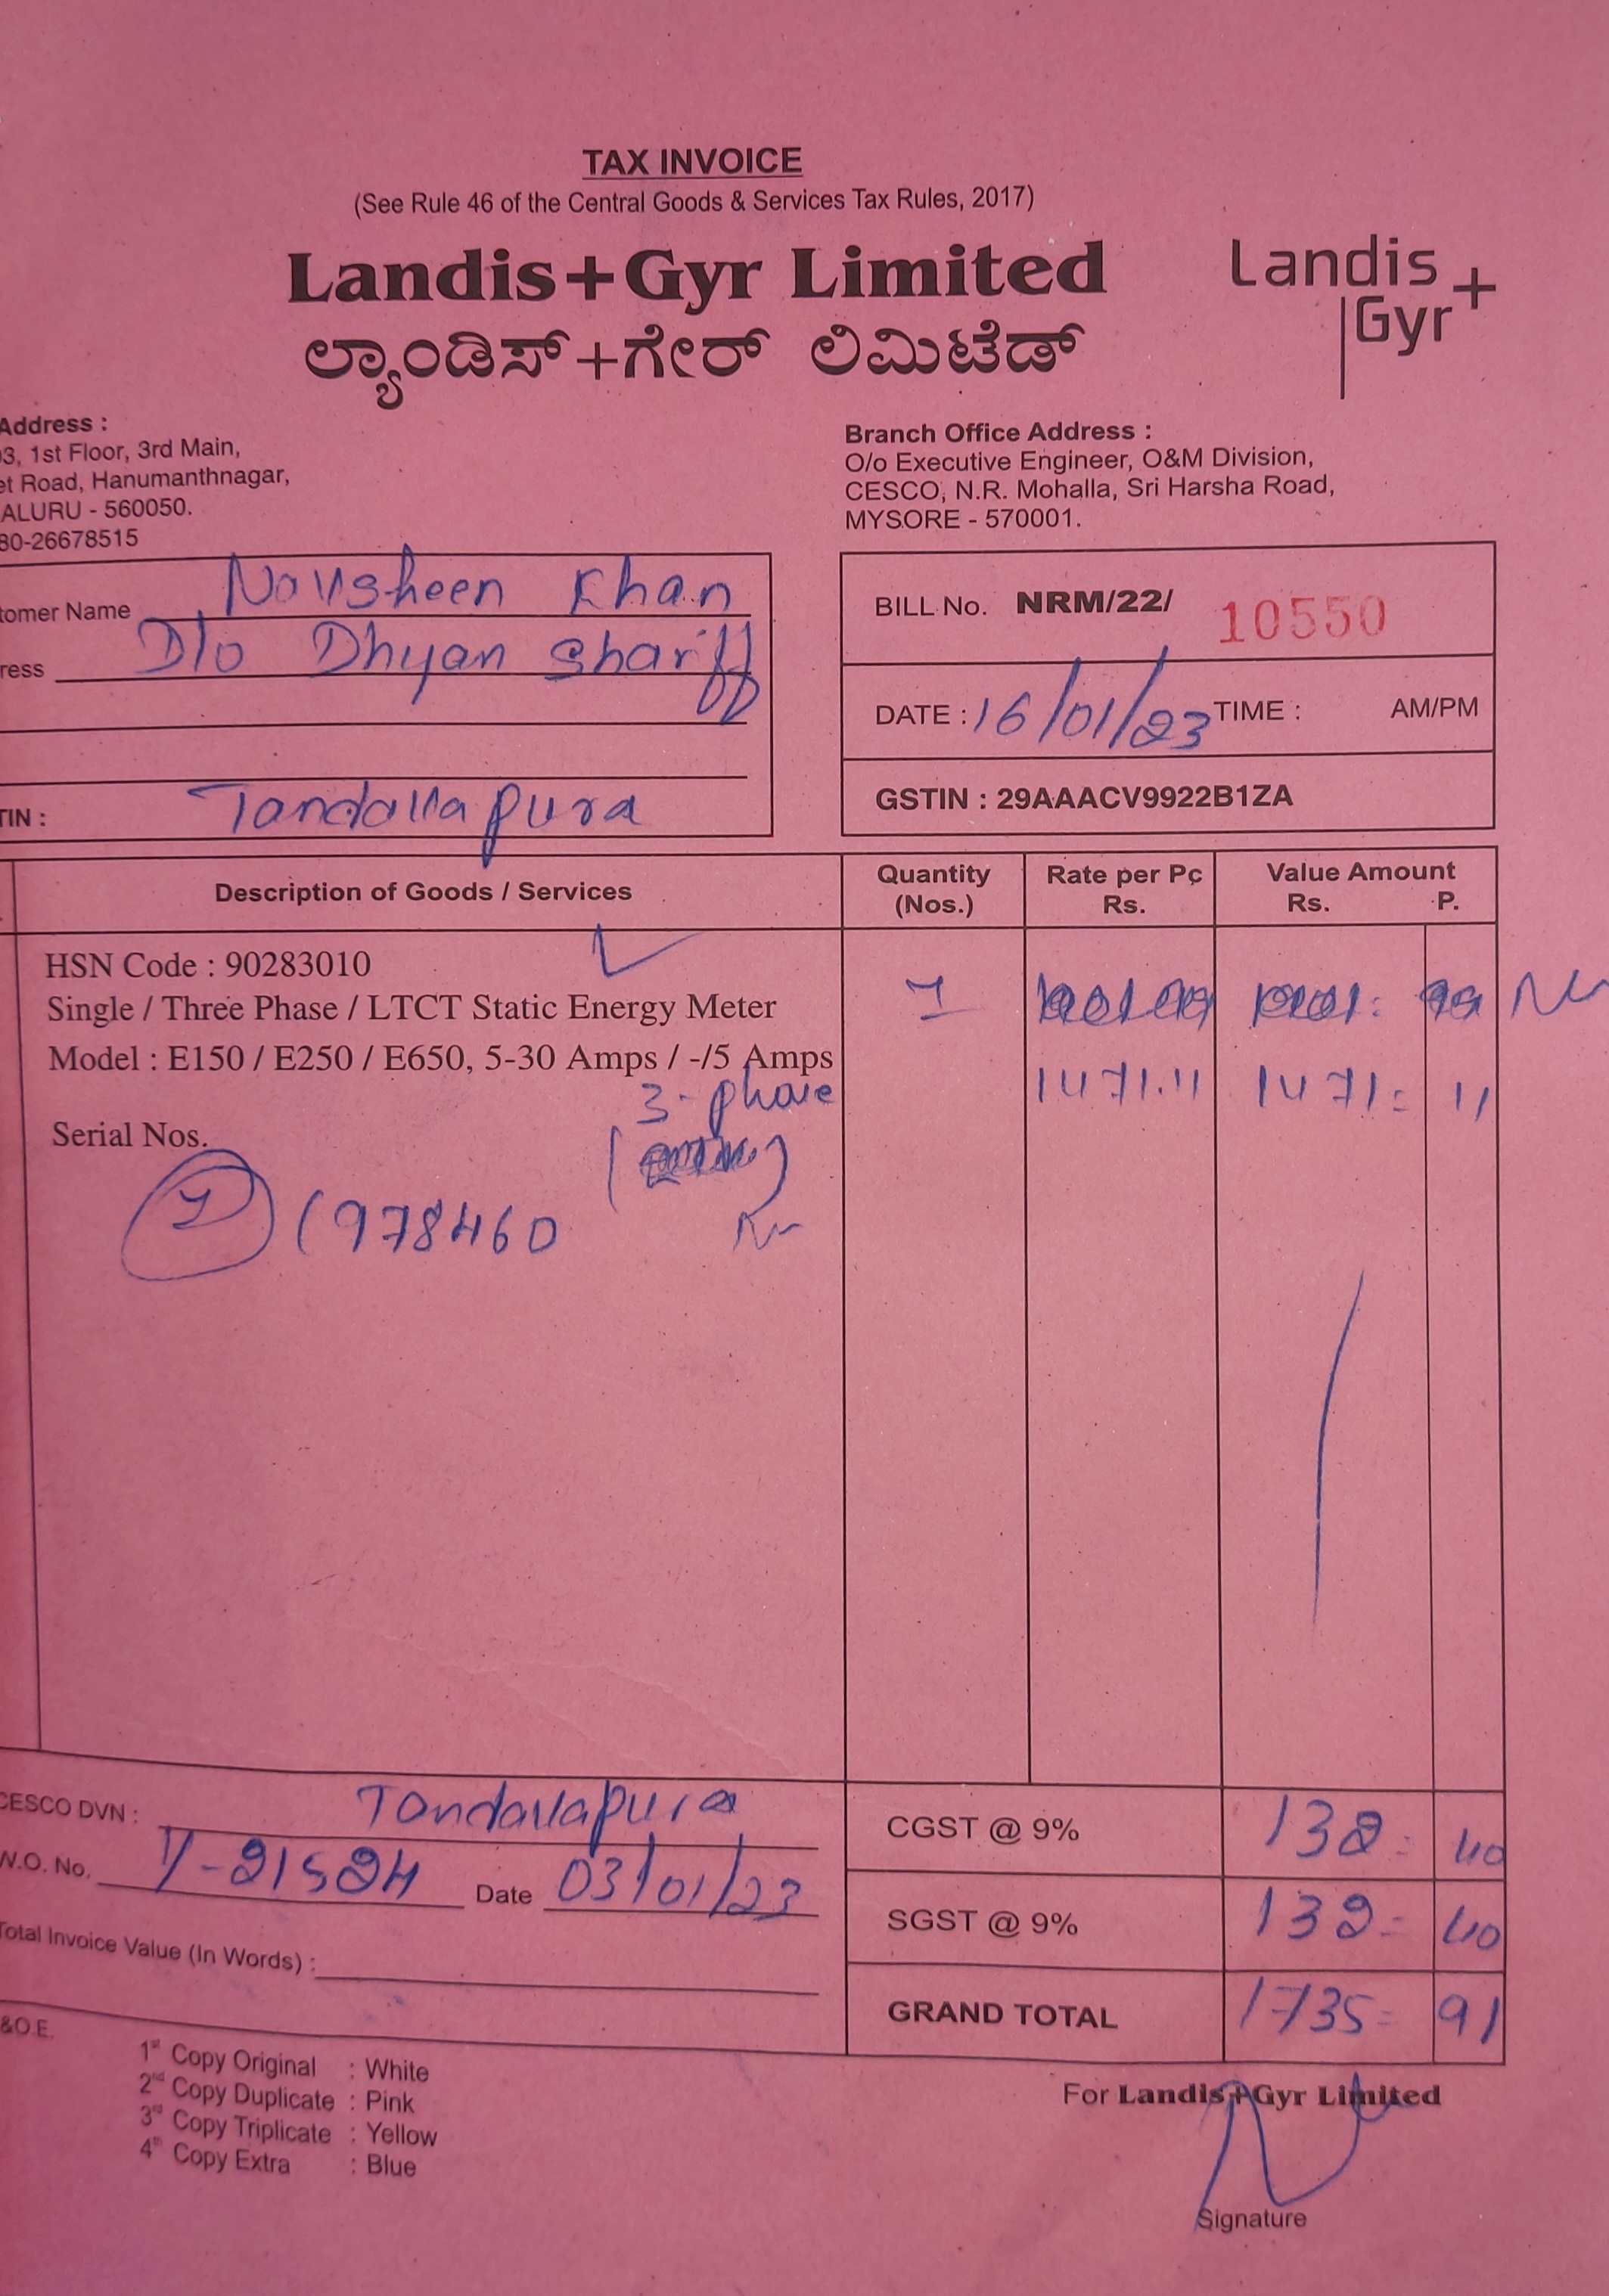 TAX INVOICE
(See Rule 46 of the Central Goods & Services Tax Rules, 2017)
Landis+Gyr Limited
Landis+
Gyr
ಲ್ಯಾಂಡಿಸ್+ಗೇರ್ ಲಿಮಿಟೆಡ್
Address :
03, 1st Floor, 3rd Main,
et Road, Hanumanthnagar,
ALURU - 560050.
80-26678515
Branch Office Address :
O/o Executive Engineer, O&M Division,
CESCO, N.R. Mohalla, Sri Harsha Road,
MYSORE - 570001.
tomer Name Novsheen Khan
ress D/o Dhyan Shariff
TIN : Tandavapura
BILL No. NRM/22/ 10550
DATE : 16/01/23 TIME : AM/PM
GSTIN : 29AAACV9922B1ZA
Description of Goods / Services Quantity (Nos.) Rate per Pc Rs. Value Amount Rs. P.
HSN Code : 90283010
Single / Three Phase / LTCT Static Energy Meter 1
Model : E150 / E250 / E650, 5-30 Amps / -/5 Amps
3-phase 1471.11 1471= 11
Serial Nos.
1 (978460
CESCO DVN : Tandavapura
W.O. No. 1/-21524 Date 03/01/23
Total Invoice Value (In Words) :
CGST @ 9% 132= 40
SGST @ 9% 132= 40
GRAND TOTAL 1735= 91
&O.E.
1st Copy Original : White
2nd Copy Duplicate : Pink
3rd Copy Triplicate : Yellow
4th Copy Extra : Blue
For Landis+Gyr Limited
Signature